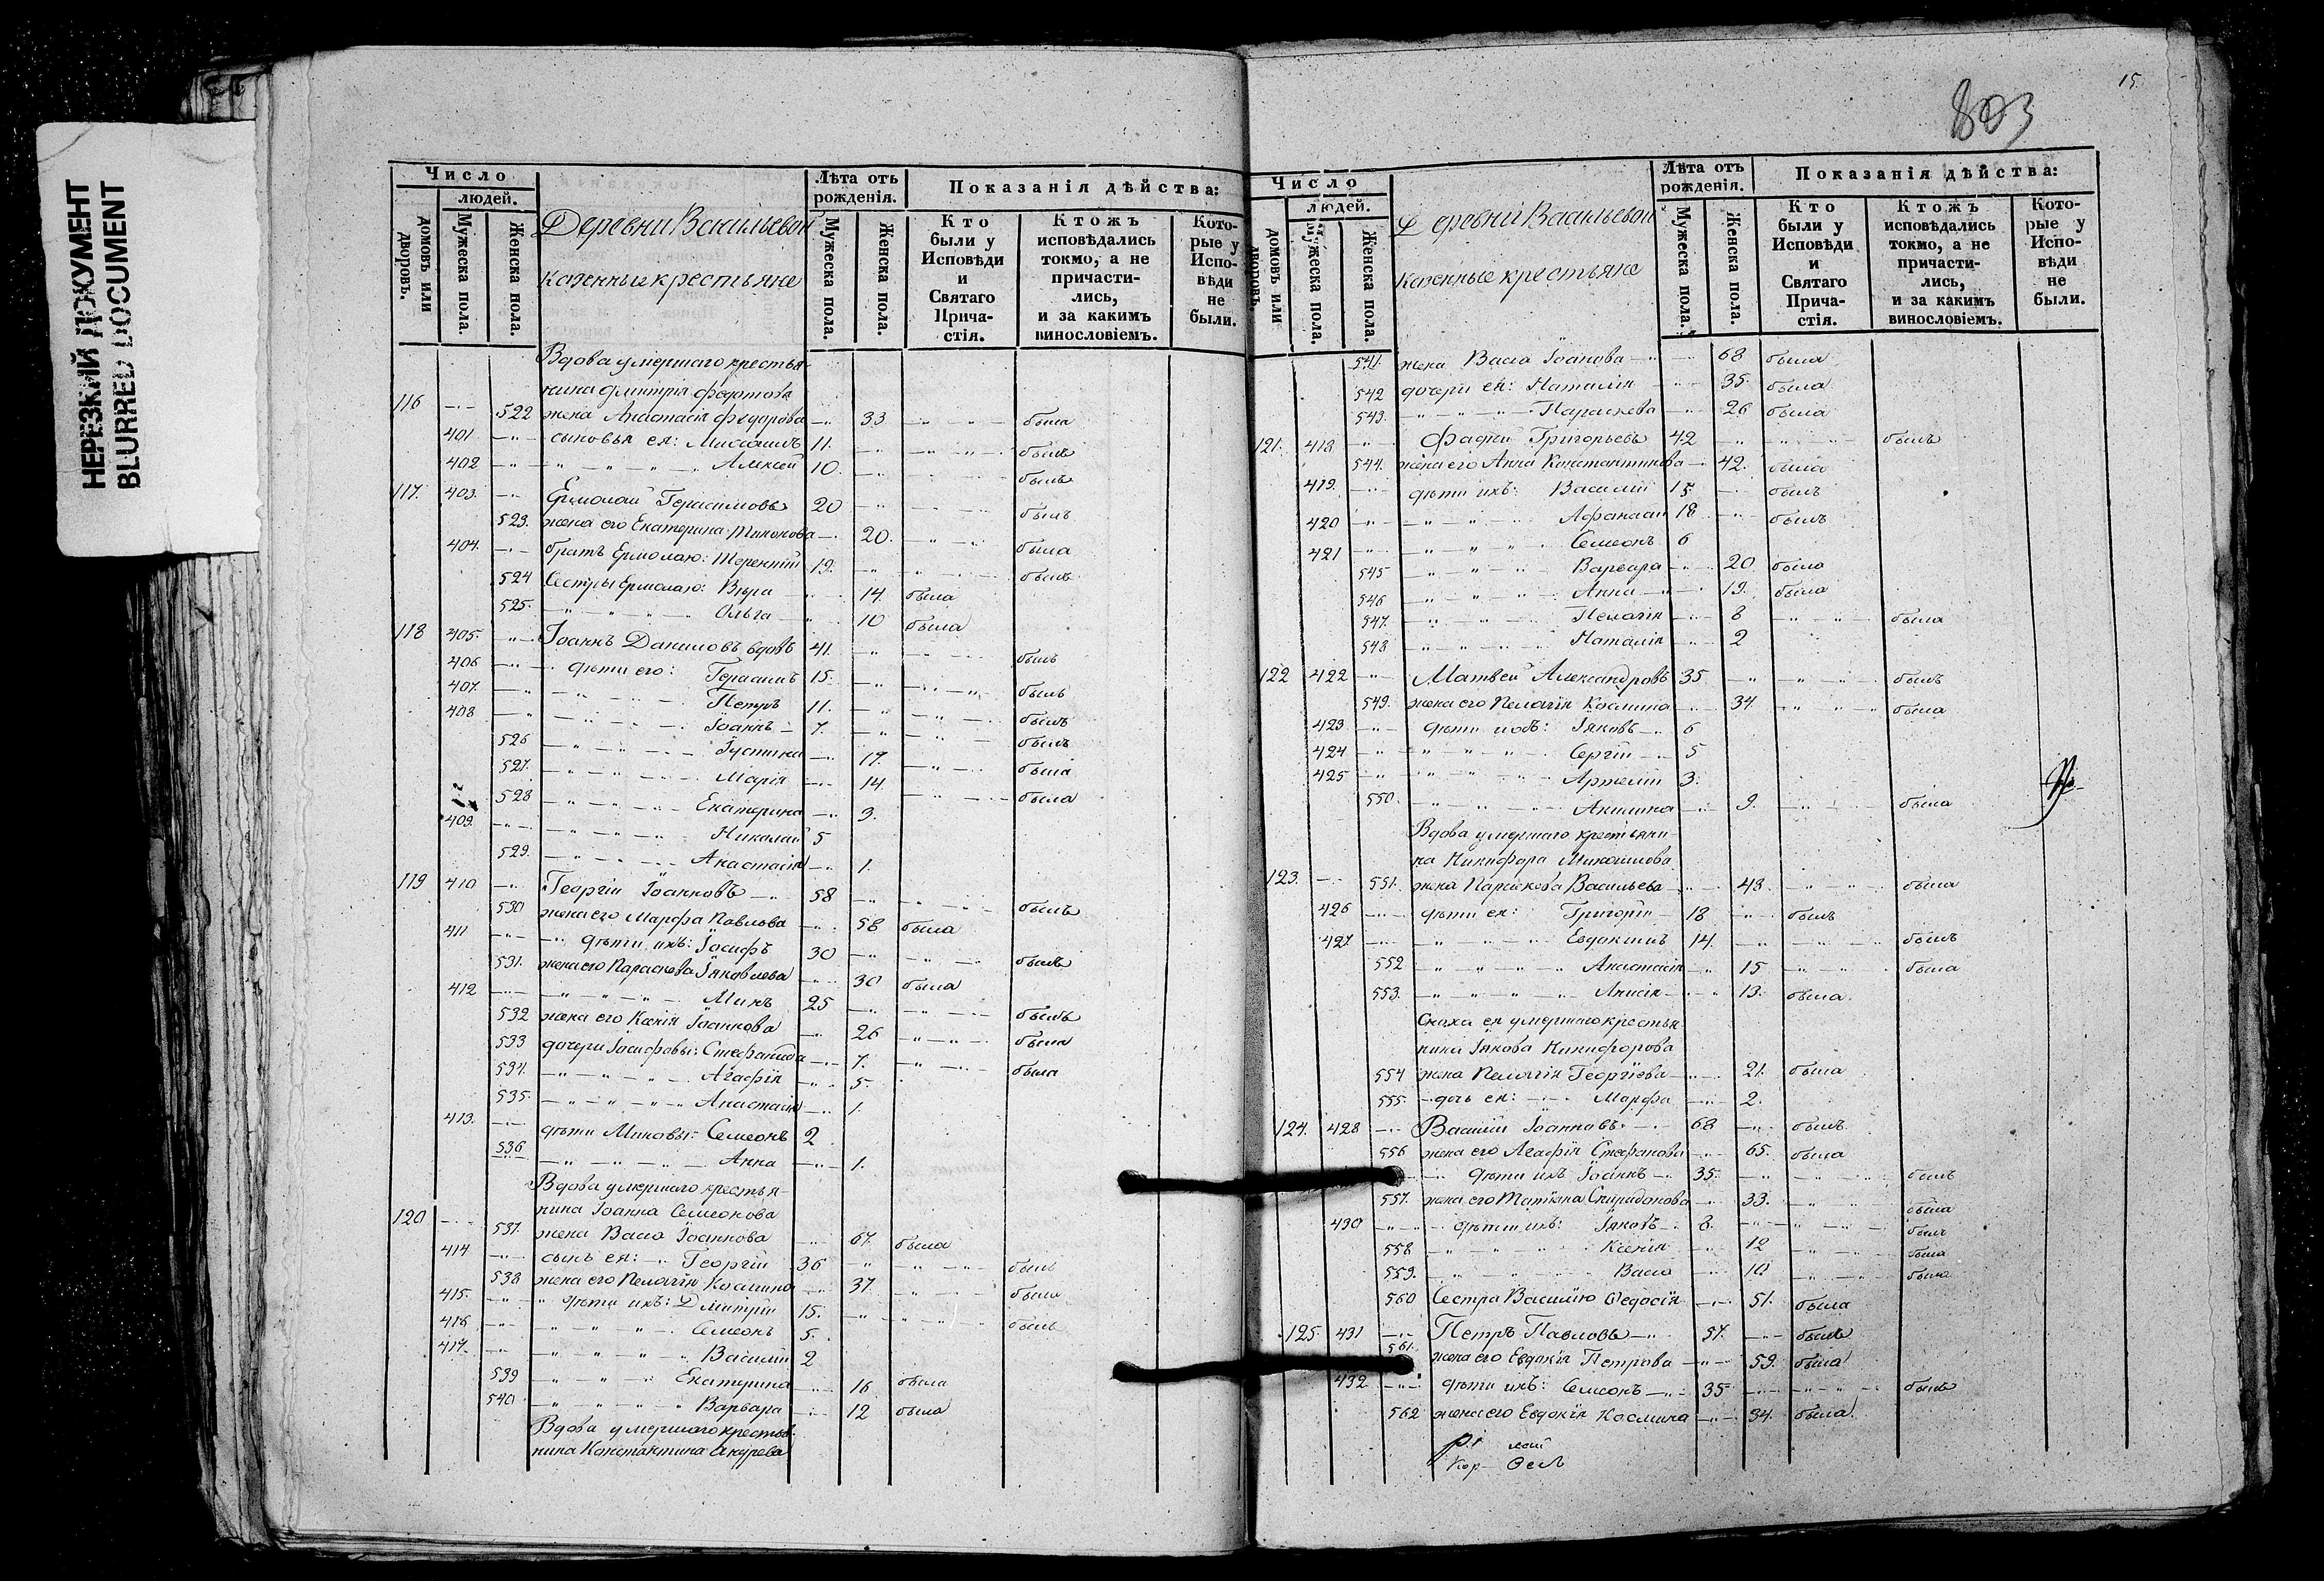 НЕРЕЗКИЙ ДОКУМЕНТ
BLURRED DOCUMENT
Число
людей.
домовъ или дворовъ.
Мужеска пола.
Женска пола.
Деревни Васильевой
казенные крестьяне
Лѣта отъ рожденія.
Мужеска пола.
Женска пола.
Показанія дѣйства:
Кто были у Исповѣди и Святаго Прича- стія.
Ктожъ исповѣдались токмо, а не причасти- лись, и за какимъ винословіемъ.
Кото- рые у Испо- вѣди не были.
Вдова умершаго крестья
нина Дмитрія Федотова
116 522 жена Анастасія Федорова 33 была
401 сыновья ея: Миссаилъ 11. былъ
402 Алексей 10. былъ
117. 403. Ермолай Герасимовъ 20 былъ
523. жена его Екатерина 20. была
404. братъ Ермолаю: Терентий 19. былъ
524 Сестры Ермолаю: Вѣра 14. была
525. Ольга 10 была
118 405. Іоаннъ Даниловъ вдовъ 41. былъ
406 дѣти его: Герасимъ 15. былъ
407. Петръ 11. былъ
408 Іоаннъ 7. былъ
526 Іустина 17. была
527. Марія 14. была
528 Екатерина 9.
409. Николай 5
529. Анастасія 1.
119 410 Георгій Іоанновъ 58 былъ
530 жена его Марфа Павлова 58 была
411 дѣти ихъ: Іосифъ 30 былъ
531. жена его Параскева Іяковлева 30 была
412 Минъ 25 былъ
532 жена его Ксенія Іоаннова 26 была
533 дочери Іосифовы: Стефанида 7. была
534. Агафія 5
535. Анастасія 1.
413. дѣти Миновы: Семеонъ 2
536 Анна 1.
Вдова умершаго крестья-
нина Іоанна Семеонова
120 537. жена Васса Іоаннова 67. была
414 сынъ ея: Георгій 36 былъ
538 жена его Пелагія Космина 37. была
415. дѣти ихъ: Дмитрій 15. былъ
416 Семеонъ 5.
417. Василій 2
539 Екатерина 16 была
540 Варвара 12 была
Вдова умершаго крестья-
нина Константина Андреева
15.
803
Число
людей.
домовъ или дворовъ.
Мужеска пола.
Женска пола.
Деревни Васильевой
казенные крестьяне
Лѣта отъ рожденія.
Мужеска пола.
Женска пола.
Показанія дѣйства:
Кто были у Исповѣди и Святаго Прича- стія.
Ктожъ исповѣдались токмо, а не причасти- лись, и за какимъ винословіемъ.
Кото- рые у Испо- вѣди не были.
541. жена Васса Іоаннова 68 была
542 дочери ея: Наталія 35. была
543. Параскева 26 была
121. 418 Фадей Григорьевъ 42 былъ
544. жена его Анна Константинова 42. была
419. дѣти ихъ: Василій 15. былъ
420 Афанасий 18 былъ
421 Семеонъ 6
545 Варвара 20 была
546 Анна 19. была
547. Пелагія 8 была
548 Наталія 2
122 422 Матвей Александровъ 35 былъ
549. жена его Пелагія Космина 34. была
423 дѣти ихъ: Іяковъ 6
424 Сергій 5
425 Артемій 3.
550. Акилина 9. была
Вдова умершаго крестьяни-
на Никифора Михайлова
123. 551. жена Параскева Васильева 43. была
426 дѣти ея: Григорій 18 былъ
427. Евдокимъ 14. былъ
552 Анастасія 15 была
553. Анисія 13. была.
Сноха ея умершаго крестья
нина Іякова Никифорова
554 жена Пелагія Георгіева 21. была
555. дочь ея: Марфа 2.
124. 428 Василій Іоанновъ 68 былъ.
556 жена его Агафія Стефанова 65. была
дѣти ихъ Іоаннъ 35. былъ
557. жена его Татіяна Спиридонова 33. была
430 дѣти ихъ: Іяковъ 8. былъ
558 Ксенія 12 была
559. Васса 10 была
560 Сестра Василію Ѳедосія 51. была
125. 431 Петръ Павловъ 57. былъ
561. жена его Евдокія Петрова 59. была
432 дѣти ихъ: Семеонъ 35 былъ
562 жена его Евдокія Космина 34. была.